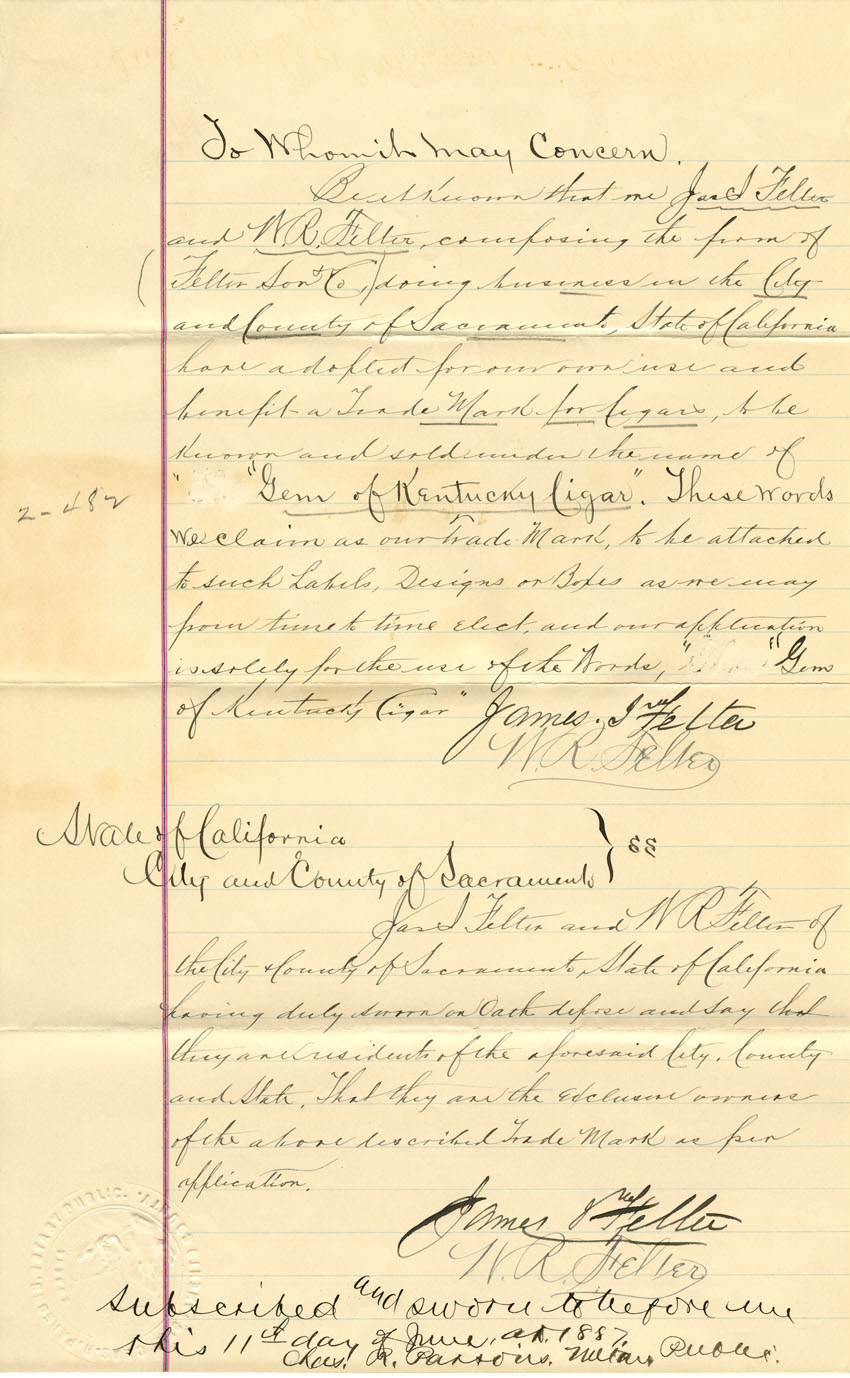 To Whom it may Concern.
Be it Known that we Jas I Felter
and W. R. Felter, composing the firm of
(Felter Son & Co,) doing business in the City
and County of Sacramento, State of California
have adopted for our own use and
benefit a Trade Mark for Cigars, to be
Known and sold under the name of
"Gem of Kentucky Cigar". These Words
2-482
we claim as our Trade Mark, to be attached
to such Labels, Designs or Boxes as we may
from time to time Elect, and our application
is solely for the use of the Words, "Gem
of Kentucky Cigar"
James. I Felter
W. R. Felter
State of California
City and County of Sacramento } SS
Jas I Felter and W R Felter of
the City & County of Sacramento, State of California
having duly sworn on Oath depose and say that
they are residents of the aforesaid City, County
and State, That they are the Exclusive owners
of the above described Trade Mark as per
application.
James I Felter
W. R. Felter
Subscribed and sworn to before me
this 11th day of June, A.D. 1887.
Chas. R. Parsons. Notary Public.